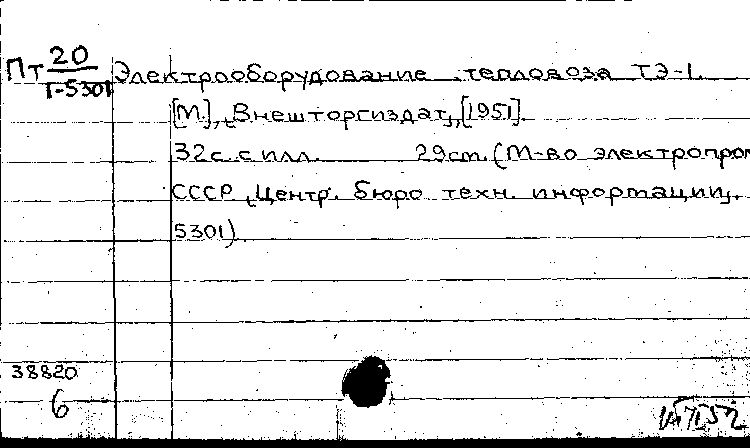 Пт 20
Г-5301
Электрооборудование тепловоза ТЭ-1.
[М], „Внешторгиздат", [1951].
32с. с илл. 29см. (М-во электропром
СССР „Центр. бюро техн. информации".
5301)
38820
6